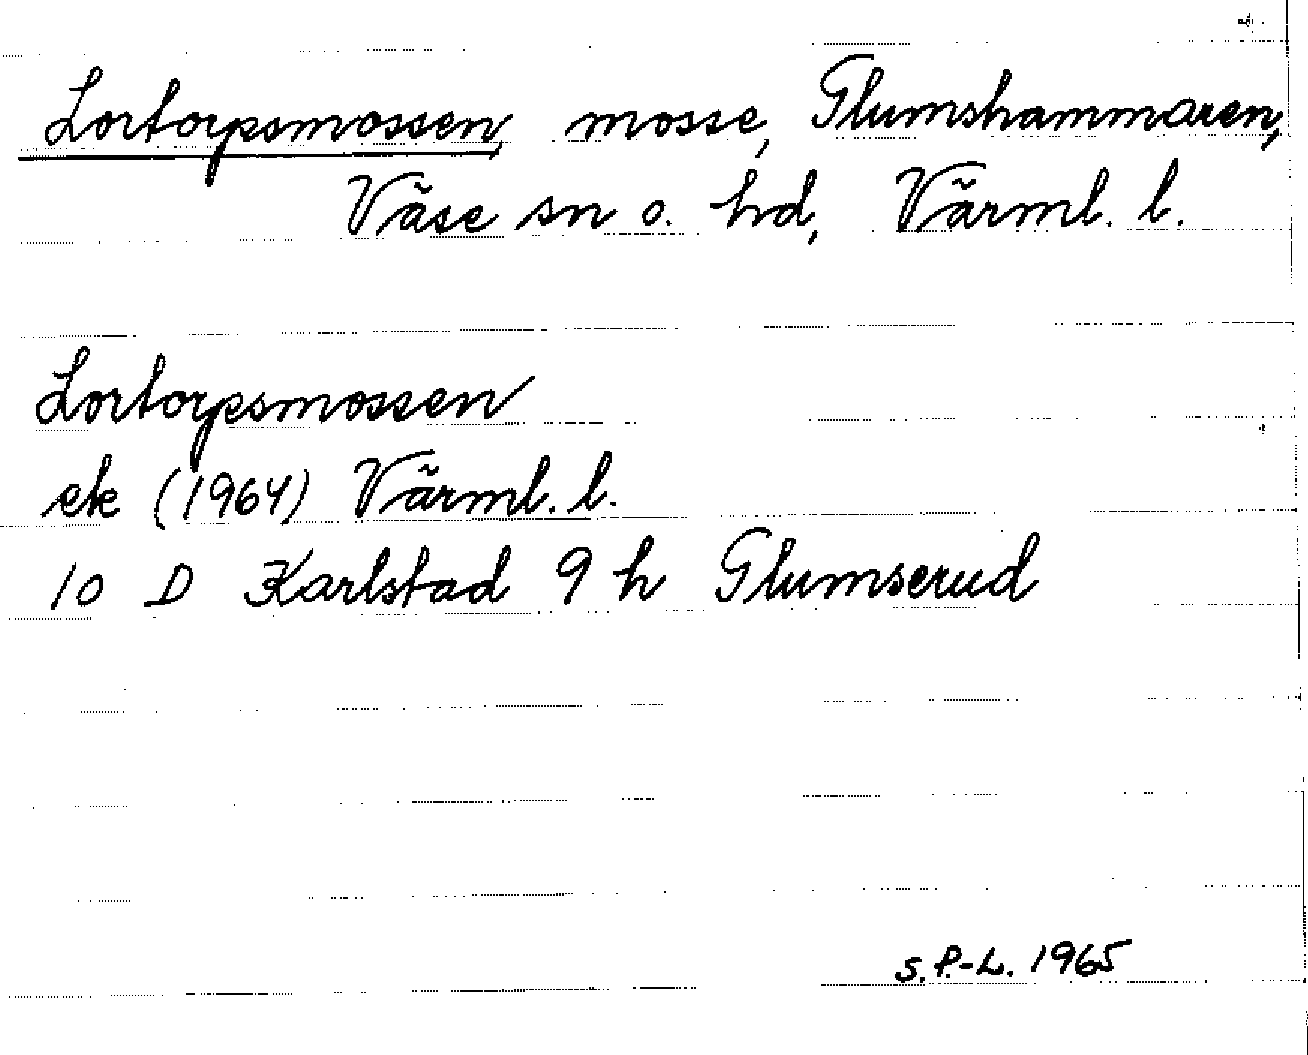 Lortorpsmossen, mosse, Glumshammaren,
Väse sn o. hd, Värml. l.
Lortorpsmossen
ek (1964) Värml. l.
10 D Karlstad 9 h Glumserud
S. P.-L. 1965